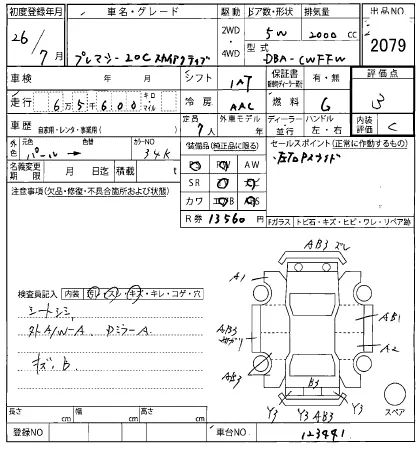 初度登録年月 車名・グレード 駆動 ドア数・形状 排気量 出品NO
26年7月 プレマシー 20C スカイアクティブ 2WD・4WD 5W 2000cc 2079
型式 DBA-CWFFW
車検 年 月 シフト IAT 保証書 有・無 評価点
走行 6万5千600 キロ・マイル 冷房 AAC 燃料 G 3
車歴 自家用・レンタ・事業用( ) 定員 7人 外車モデル 年 ディーラー・並行 ハンドル 左・右 内装評価 C
外色 元色 パール → 色替 カラーNO 34K 装備品(純正品に限る) セールスポイント(正常に作動するもの)
名義変更期限 月 日迄 積載 t PS PW AW
左右Pスライド
注意事項(欠品・修復・不具合箇所および状態) SR
カワ
R券 13560円
Fガラス トビ石・キズ・ヒビ・ワレ・リペア跡
AB3 ズレ
A1
検査員記入 内装 ヨレ・スレ・キズ・キレ・コゲ・穴
シートシミ
外A/W-A DミラーA
AB3
AB1
A2
AB3
B3
Y3 Y3 AB3 Y3
スペア
長さ cm 幅 cm 高さ cm
登録NO 車台NO 123441